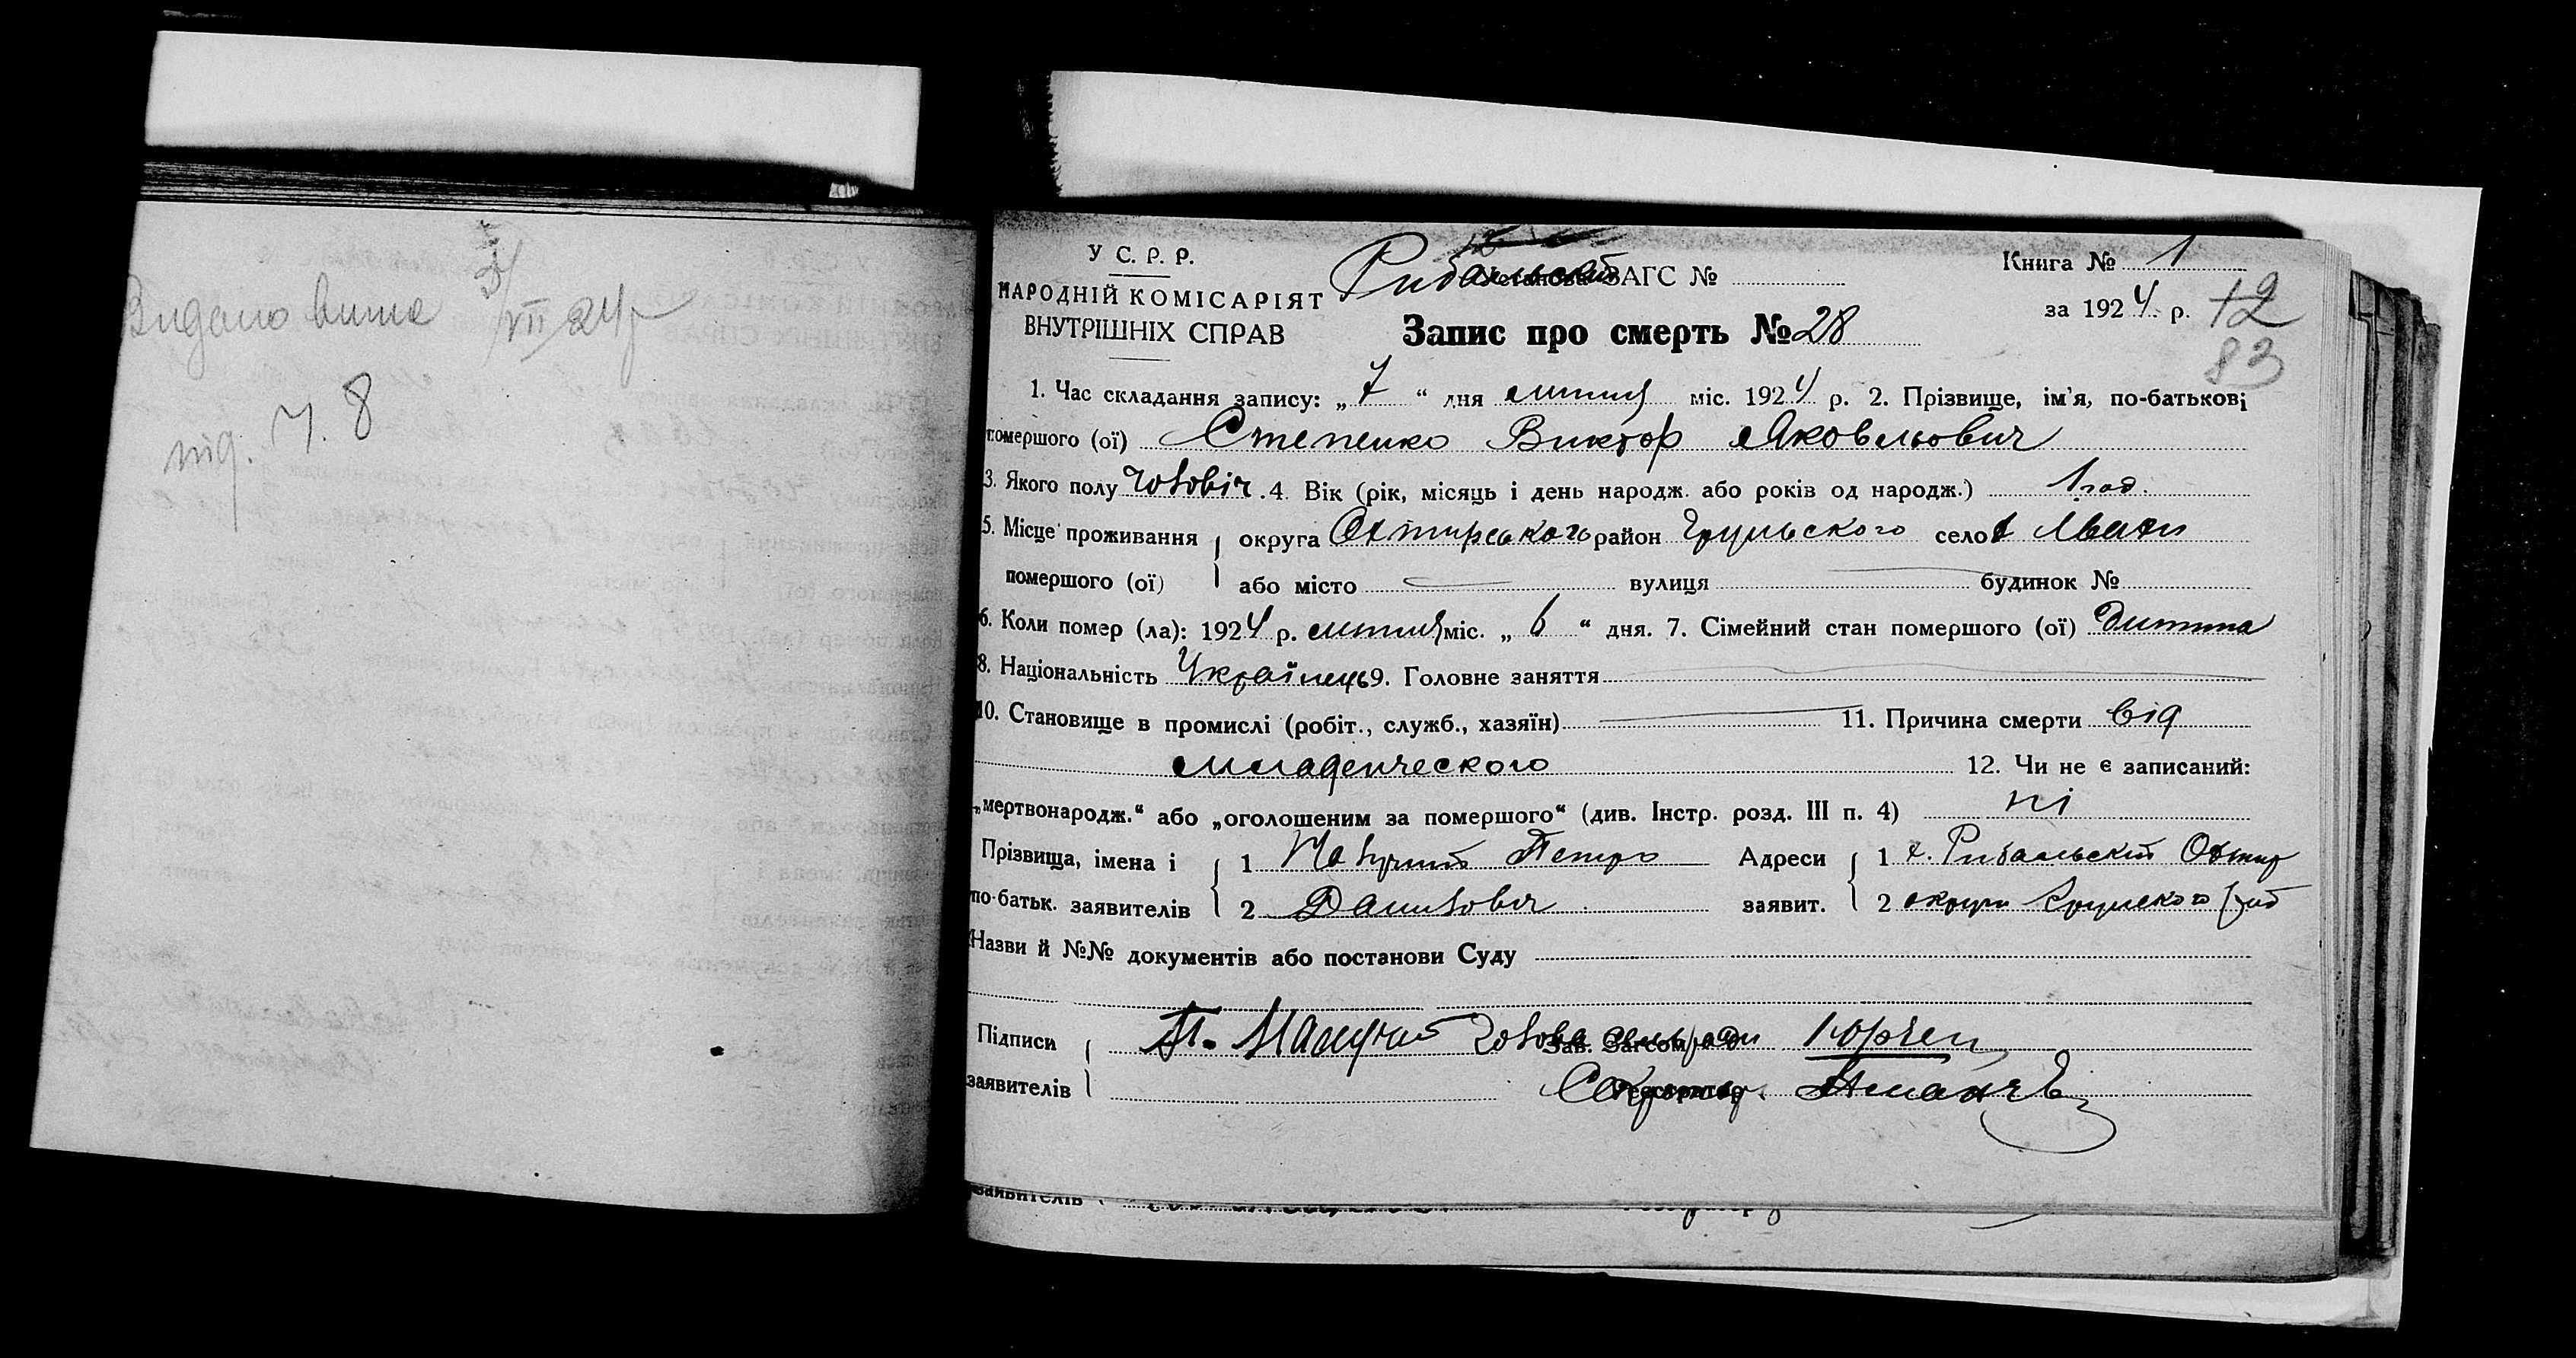 Видано випис 3/VII 24 р
під. ч. 8
У С. Р. Р.
НАРОДНІЙ КОМІСАРІЯТ
ВНУТРІШНІХ СПРАВ
Рибальский ЗАГС №
Книга № 1
за 1924 р. 12
83
Запис про смерть № 28
1. Час складання запису: „ 7 “ дня липня міс. 1924 р. 2. Прізвище, ім'я, по-батькові
помершого (ої) Степенко Виктор Яковльович
3. Якого полу чоловіч. 4. Вік (рік, місяць і день народж. або років од народж.) 1 год.
5. Місце проживання округа Охтирського район Грунського село
помершого (ої) або місто вулиця будинок №
6. Коли помер (ла): 1924 р. липня міс. „ 6 “ дня. 7. Сімейний стан помершого (ої) Дитина
8. Національність Українець 9. Головне заняття
10. Становище в промислі (робіт., служб., хазяїн) 11. Причина смерти від
младенческого 12. Чи не є записаний:
„мертвонародж.“ або „оголошеним за помершого“ (див. Інстр. розд. III п. 4) ні
Прізвища, імена і 1 Петро Адреси 1 х. Рибальский Охтир
по-батьк. заявителів 2 Данилович заявит. 2 округи Грунского
Назви й №№ документів або постанови Суду
Підписи П. Голова сельради
Зав. Загсом
заявителів Секретар
Реєстратор
заявителів